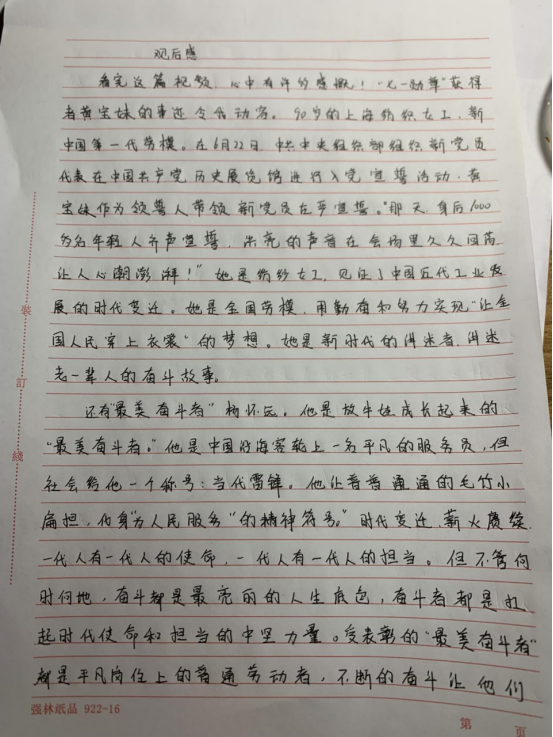 观后感
看完这篇视频,心中有许多感慨!“七一勋章”获得
者黄宝妹的事迹令我动容。90岁的上海纺织女工,新
中国第一代劳模。在6月22日,中共中央组织部组织新党员
代表在中国共产党历史展览馆进行入党宣誓活动,黄
宝妹作为领誓人带领新党员庄严宣誓。“那天,身后1000
多名年轻人齐声宣誓,洪亮的声音在会场里久久回荡
让人心潮澎湃!”她是纺纱女工,见证了中国近代工业发
展的时代变迁。她是全国劳模,用勤奋和努力实现“让全
国人民穿上衣裳”的梦想。她是新时代的讲述者,讲述
老一辈人的奋斗故事。
还有“最美奋斗者”杨怀远。他是放牛娃成长起来的
“最美奋斗者。”他是中国沿海客轮上一名平凡的服务员,但
社会给他一个称号:当代雷锋。他让普普通通的毛竹小
扁担,化身“为人民服务”的精神符号。”时代变迁,薪火赓续,
一代人有一代人的使命,一代人有一代人的担当。但不管何
时何地,奋斗都是最亮丽的人生底色,奋斗者都是扛
起时代使命和担当的中坚力量。受表彰的“最美奋斗者”
都是平凡岗位上的普通劳动者,不断的奋斗让他们
裝
訂
綫
强林纸品 922-16
第 页